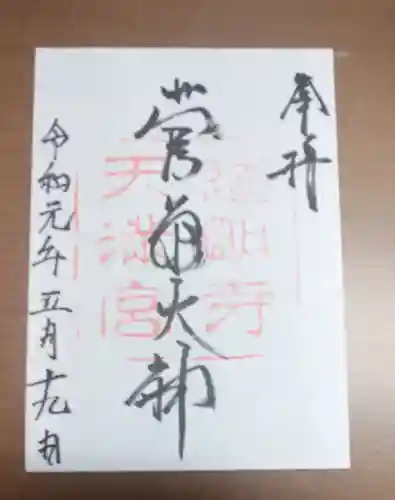 奉拝
菅原大神
天満宮
令和元年五月十九日